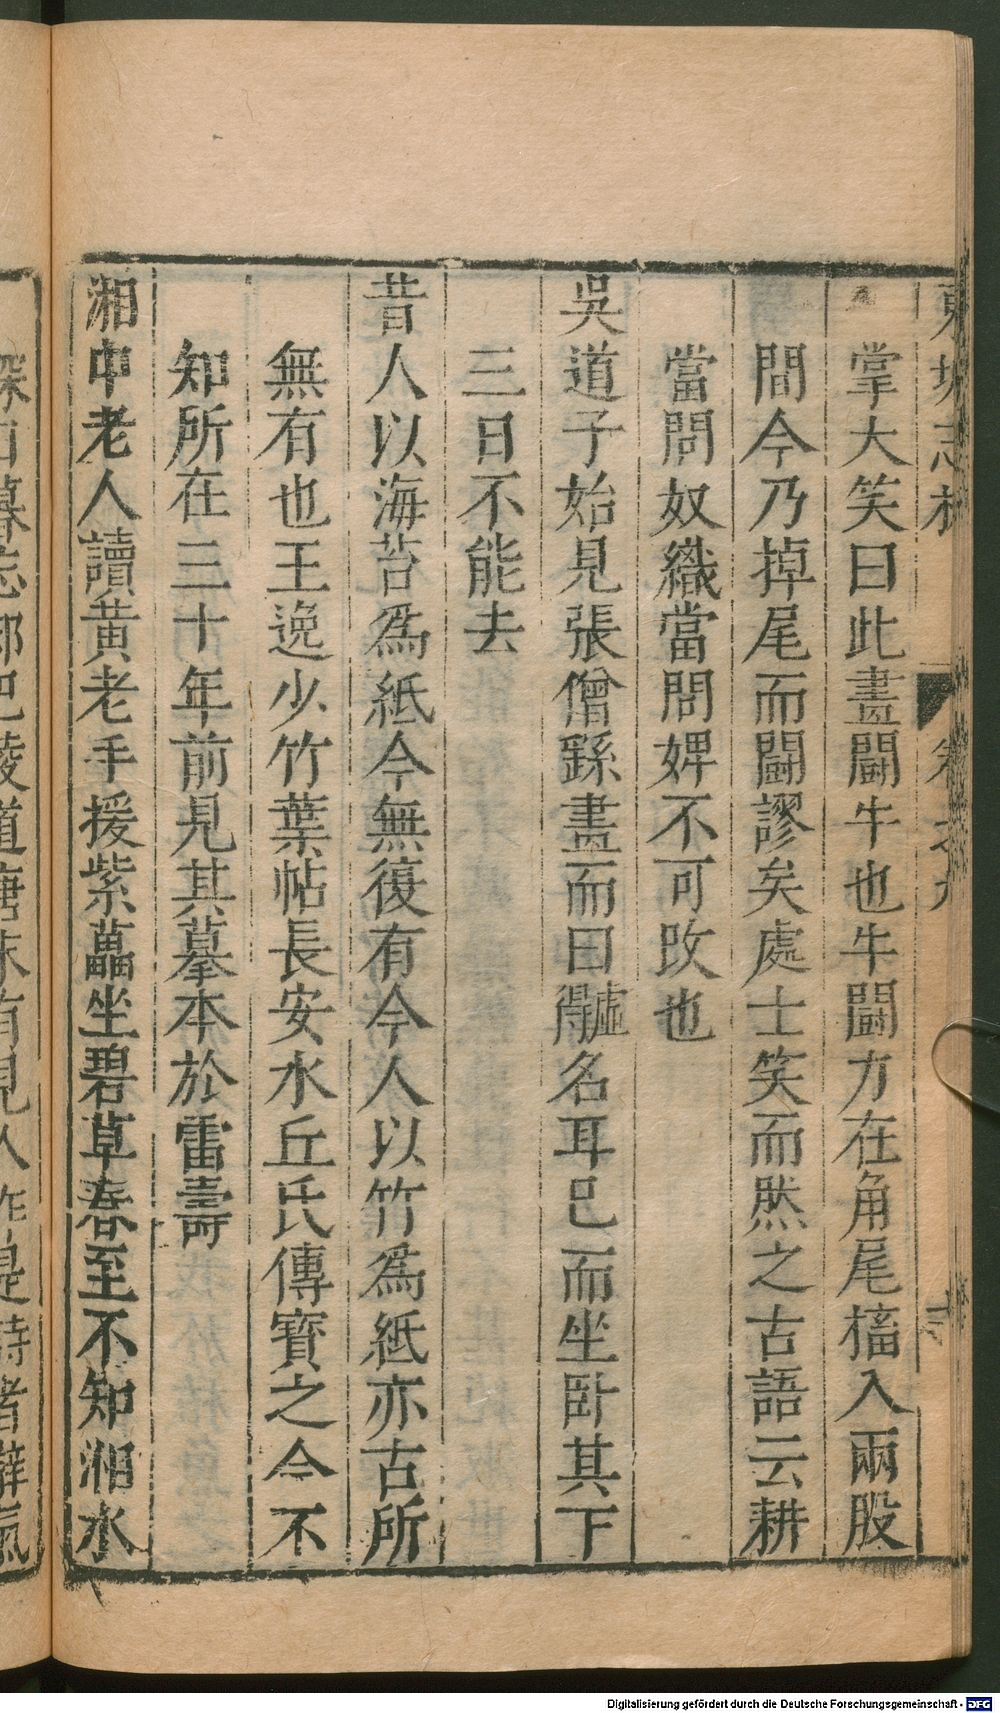 掌大笑曰此畫鬭牛也牛鬭力在角尾搐入兩股
間今乃掉尾而鬭謬矣處士笑而然之古語云耕
當問奴織當問婢不可改也
吳道子始見張僧繇畫而曰虛得名耳已而坐卧其下
三日不能去
昔人以海苔爲紙今無復有今人以竹爲紙亦古所
無有也王逸少竹葉帖長安水丘氏傳寶之今不
知所在三十年前見其摹本於雷壽
湘中老人讀黃老手援紫藟坐碧草春至不知湘水
深日暮忘却巴陵道唐末有見人作是詩者辭氣
Digitalisierung gefördert durch die Deutsche Forschungsgemeinschaft - DFG